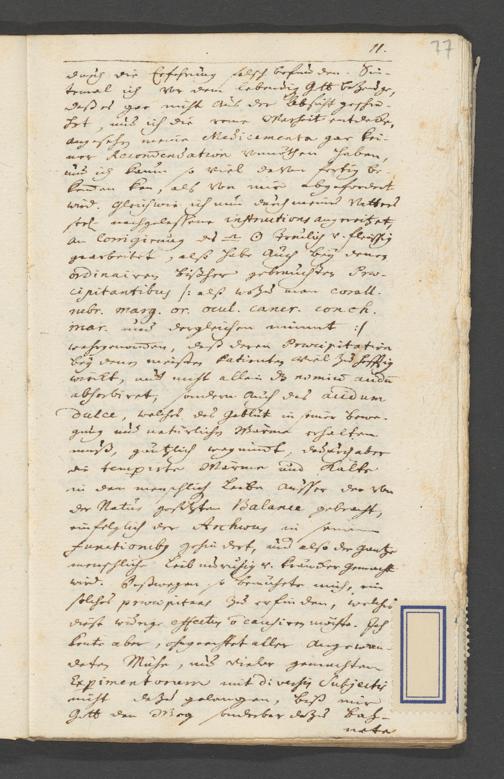 11.
77
durch die Erfahrung falsch befunden. Sin-
temal ich vor dem lebendig Gott bezeuge,
daß es gar nicht aus der Absicht geschie-
het, und ich die reine Warheit entdecke,
angesehen meine Medicamenta gar kei-
ner Recom̄endation vonnöthen haben,
und ich kaum so viel davon fertig be-
kom̄en kan, als von mir abgefordert
wird. Gleichwie ich nun durch meines Vatters
seel. nachgelassene instructions angereitzet
an Corrigierung des treulich v. fleissig
gearbeitet, also habe auch bey denen
ordinairen bißher gebräuchten Prae-
cipitantibus /: alß wozu man corall.
rubr. marg. or. ocul. cancr. conch.
mar. und dergleichen nimmt :/
wahrgenom̄en, daß deren Praecipitation
bey denen meisten Patienten viel zu hefftig
würckt, und nicht allein nimiū acidū
absorbiret, sondern auch das acidum
dulce, welches das Geblüt in seiner bewe-
gung und natürlicher Wärme erhalten
muß, gäntzlich wegnim̄t, dadurch aber
die temperirte Wärme und Kälte
in den menschlich Leibe ausser der von
der Natur gesetzten Balance gebracht,
einfolglich der Archaeus in seinen
functionibq gehindert, und also der gantze
menschliche Leib unruhig v. kräncker gemacht
wird. Deßwegen so bemühete mich, ein
solches praecipitans zu erfinden, welches
diese wiedrige effectus causiren möchte. Ich
konte aber, ohgeachtet aller angewen-
deten Mühe, und vieler gemachten
Experimentorum mit diversis Subjectis
nicht dazu gelangen, biß mir
Gott den Weg sonderbar dazu bah-
nete